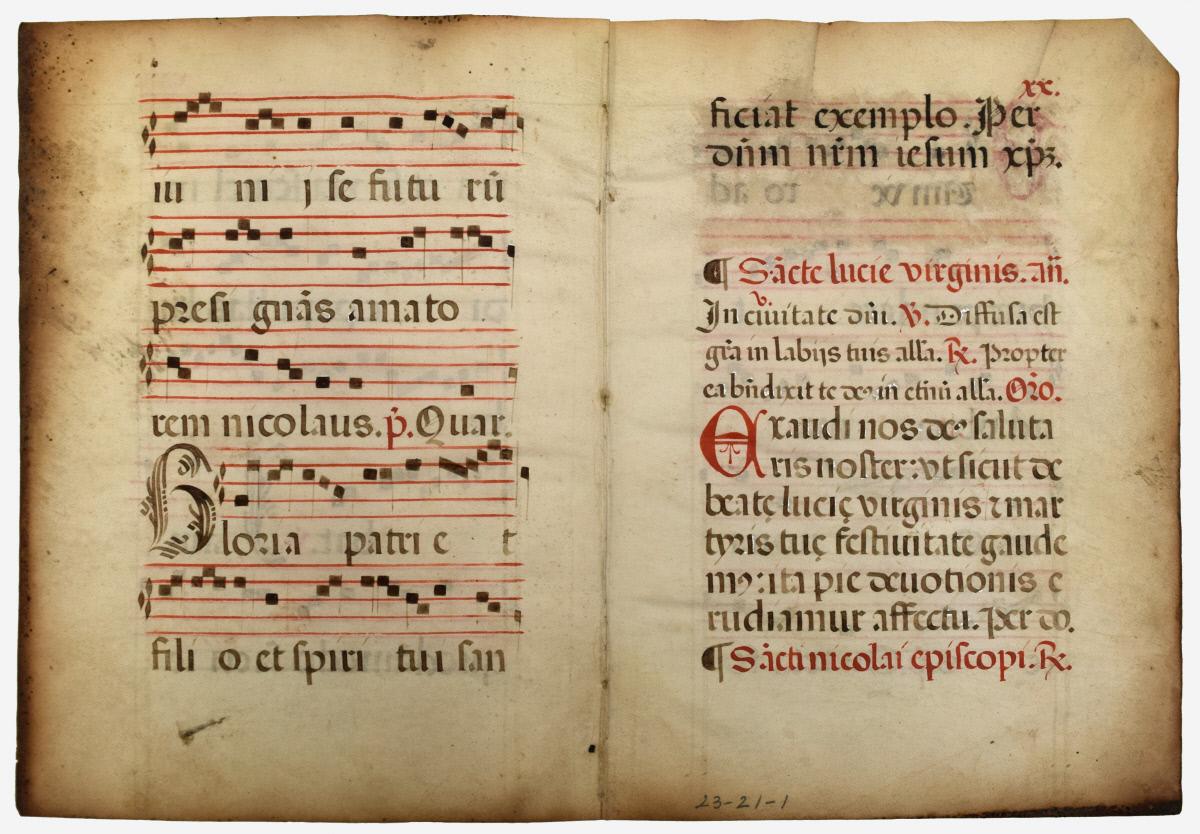 iu ni j se futu rū
presi gnās amato
rem nicolaus. p̄. Quar.
Gloria patri e t
fili o et spiri tui san
xx.
ficiat exemplo. Per
dn̄m nr̄m iesum xp̄z.
¶ Sācte lucie virginis. an̄.
In ciuitate dn̄i. v̄. Diffusa est
gr̄a in labijs tuis alła. ℟. Propter
ea bn̄dixit te de⁹ in etnū alła. Orō.
Exaudi nos de⁹ saluta
ris noster: vt sicut de
beatę lucię virginis ⁊ mar
tyris tuę festiuitate gaude
m⁹: ita pie deuotionis e
rudiamur affectu. Per do.
¶ Sācti nicolai episcopi. ℟.
23-21-1